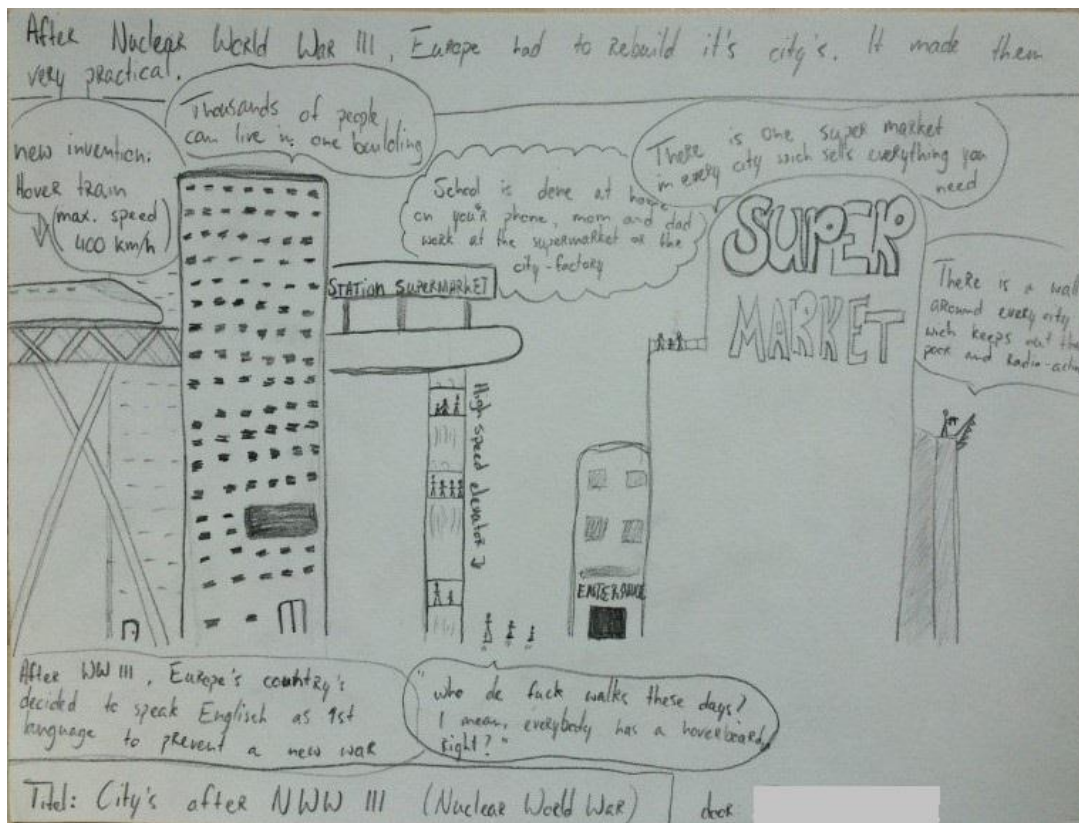 After Nuclear World War III, Europe had to Rebuild it's city's. It made them
very practical.
new invention:
Hover train
(max. speed
400 km/h)
Thousands of people
can live in one building
School is done at home
on you'r phone, mom and dad
work at the supermarket or the
city-factory
There is one super market
in every city wich sells everything you
need
STATION SUPERMARKET
SUPER
MARKET
There is a wall
around every city
wich keeps out the
poor and Radio-active
High speed elevator
ENTERANCE
After WW III, Europe's country's
decided to speak Englisch as 1st
language to prevent a new war
"who de fuck walks these days?
I mean, everybody has a hoverboard,
right?"
Titel: City's after NWW III (Nuclear World War)
door: